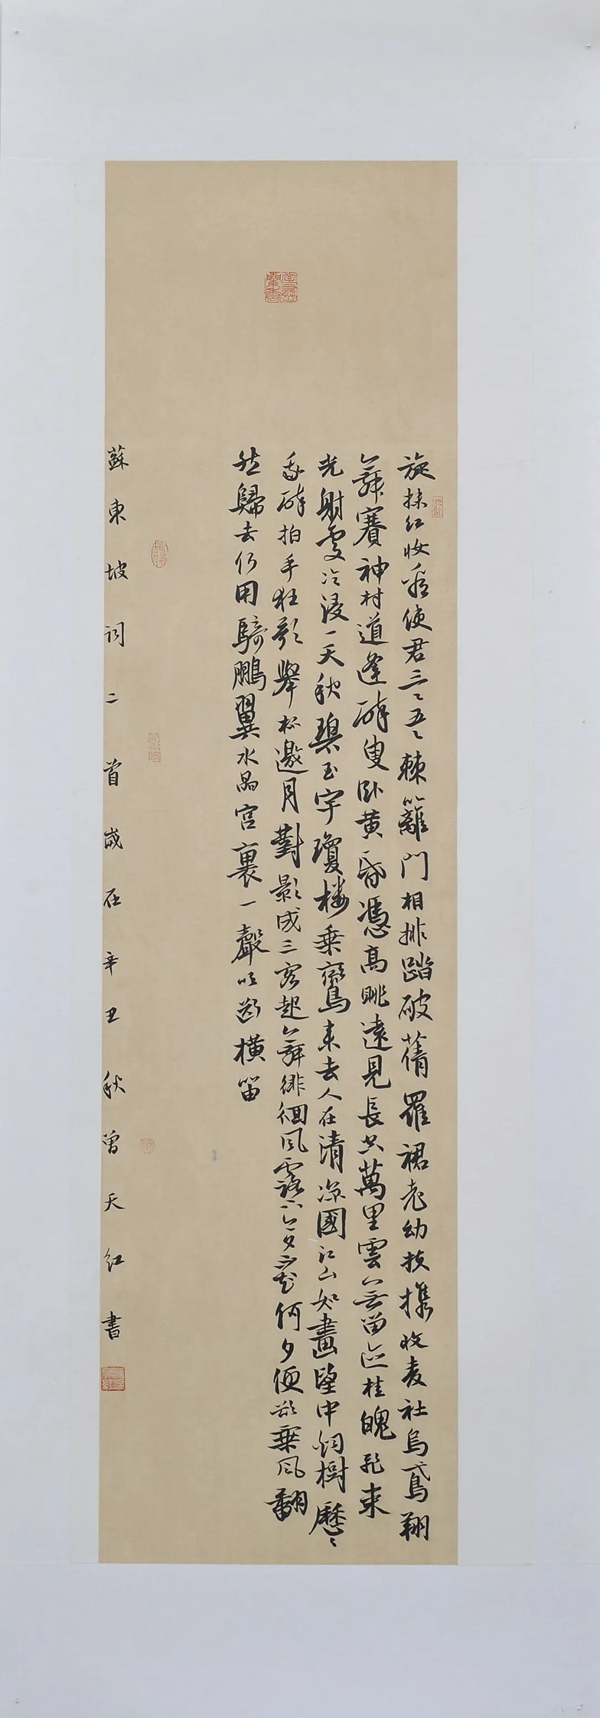 旋抹紅妝看使君三三五五棘籬門相排踏破蒨羅裙老幼扶攜收麥社烏鳶翔
舞賽神村道逢醉叟卧黄昏憑高眺遠見長空萬里雲無留迹桂魄飛來
光射處冷浸一天秋碧玉宇瓊樓乘鸞來去人在清凉國江山如畫望中烟樹歷歷
我醉拍手狂歌舉杯邀月對影成三客起舞徘徊風露下今夕不知何夕便欲乘風翻
然歸去何用騎鵬翼水晶宮裏一聲吹斷橫笛
蘇東坡詞二首歲在辛丑秋曾天紅書